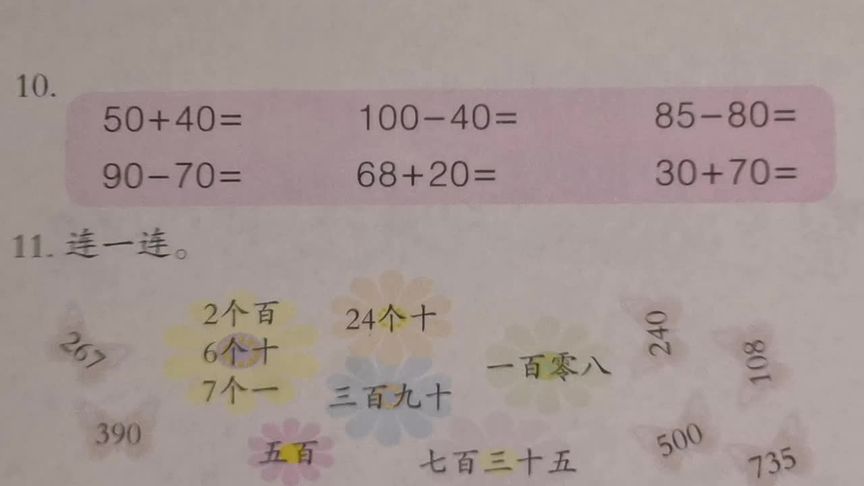 10.
50+40= 100-40= 85-80=
90-70= 68+20= 30+70=
11. 连一连。
267
2个百
6个十
7个一
24个十
240
一百零八
108
三百九十
390
五百
七百三十五
500
735